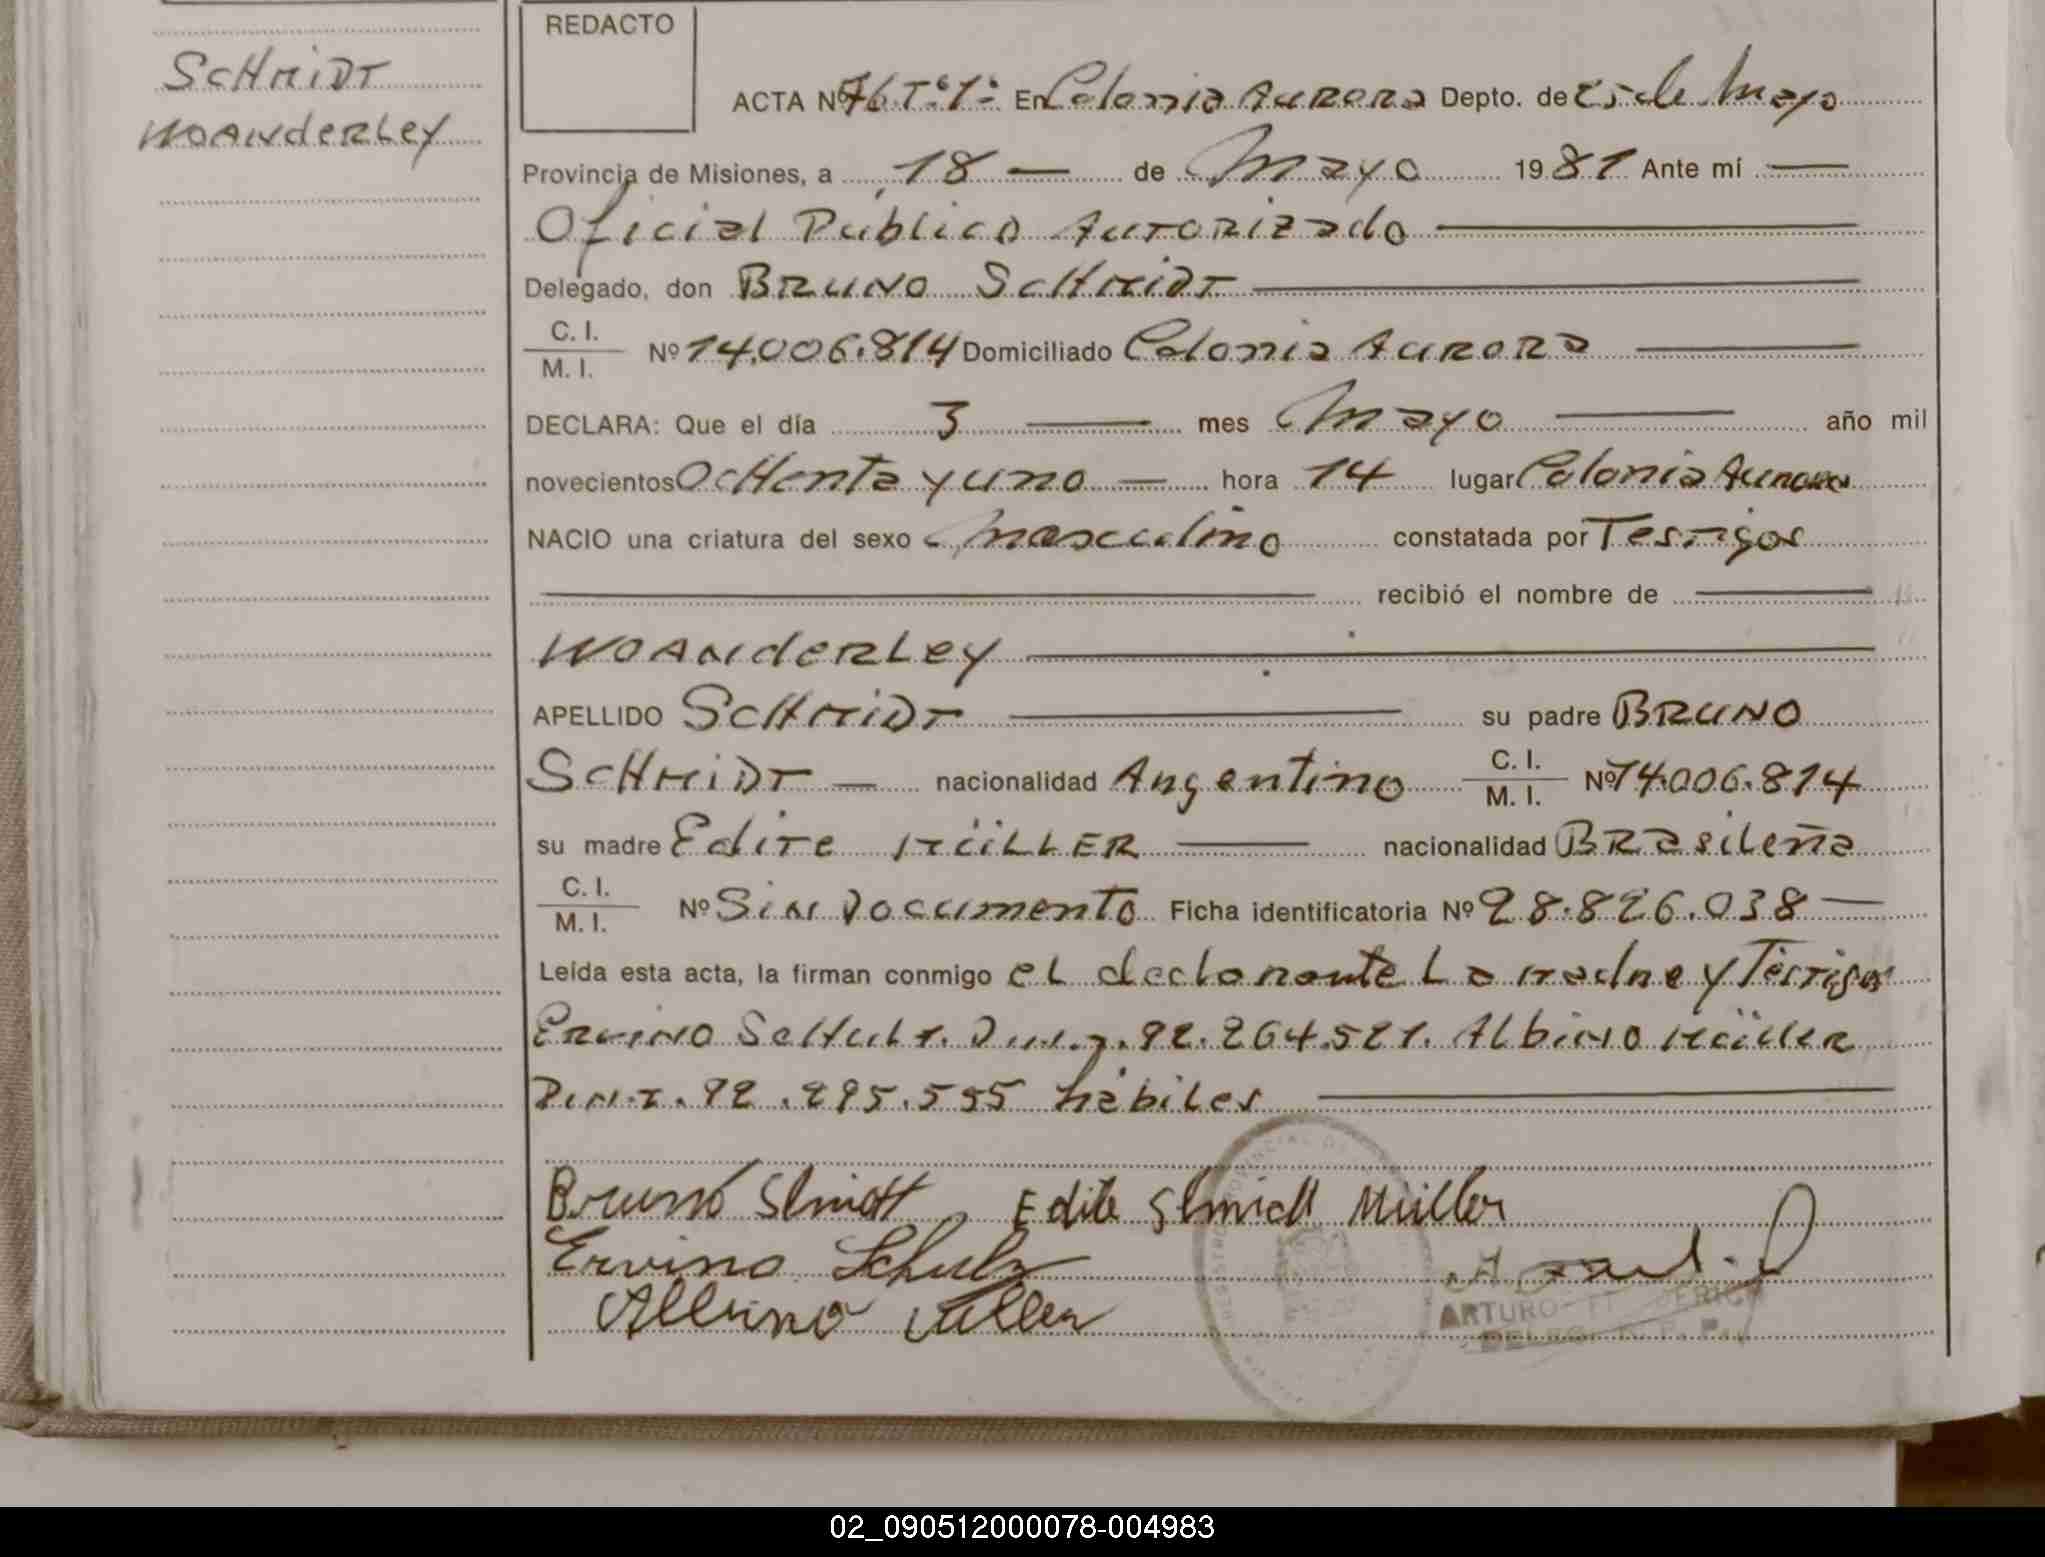 SCHMIDT
WOANdERLEY
REDACTO
ACTA Nº 76 Tº 1º En Colonia Aurora Depto. de 25 de Mayo
Provincia de Misiones, a 18 — de Mayo 1981 Ante mí —
Oficial Público Autorizado —
Delegado, don BRUNO SCHMIDT —
C. I.
M. I. Nº 14.006.814 Domiciliado Colonia Aurora —
DECLARA: Que el día 3 — mes Mayo — año mil
novecientos OcHenta y uno — hora 14 lugar Colonia Aurora
NACIO una criatura del sexo masculino constatada por Testigos
— recibió el nombre de —
WOANdERLEY —
APELLIDO SCHMIDT — su padre BRUNO
SCHMIDT — nacionalidad Argentino C. I. M. I. Nº 14.006.814
su madre Edite MüLLER — nacionalidad BRasileña
C. I.
M. I. Nº Sin Documento Ficha identificatoria Nº 28.826.038 —
Leída esta acta, la firman conmigo el declarante La madre y Testigos
ERvINO ScHulz. D.N.I. 92.264.521. Albino Müller
D.N.I. 92.295.555 hábiles —
Bruno Shmidt Edite Shmidt Müller
Ervino Schulz
Albino Müller
ARTURO
02_090512000078-004983